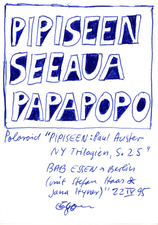 PIPISEEN
SEEAUA
PAPAPOPO
Polaroid "PIPISEEN: Paul Auster
NY Trilogien, S. 25"
BAB ESSEN + Berlin
(mit Stefan Haas &
Jana Hyner) 22 IV 95